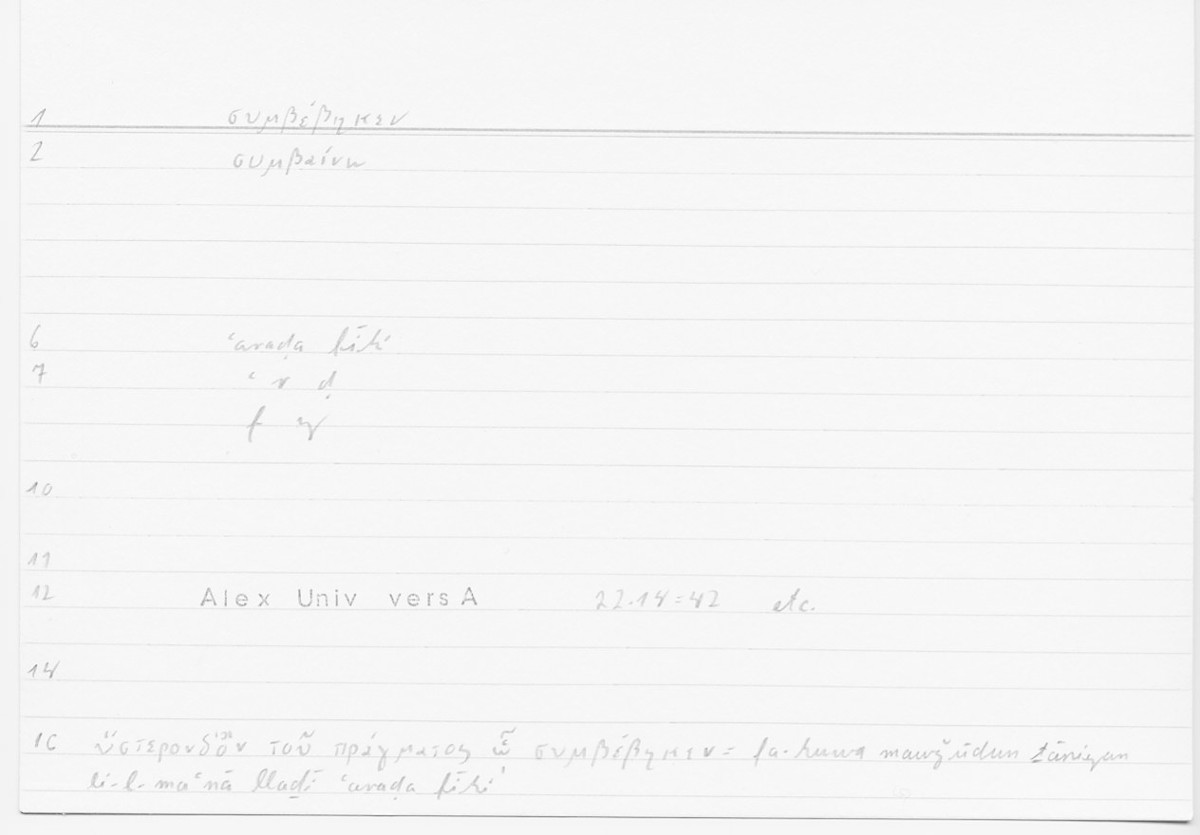 1 συμβέβηκεν
2 συμβαίνω
6 ʿaraḍa fīhi
7 ʿ r ḍ
f y
10
11
12 Alex Univ vers A 22.14=42 etc.
14
15 ὕστερον δ' ὂν τοῦ πράγματος ᾧ συμβέβηκεν = fa-huwa mawǧūdun ṯāniyan
li-l-maʿnā llaḏī ʿaraḍa fīhi